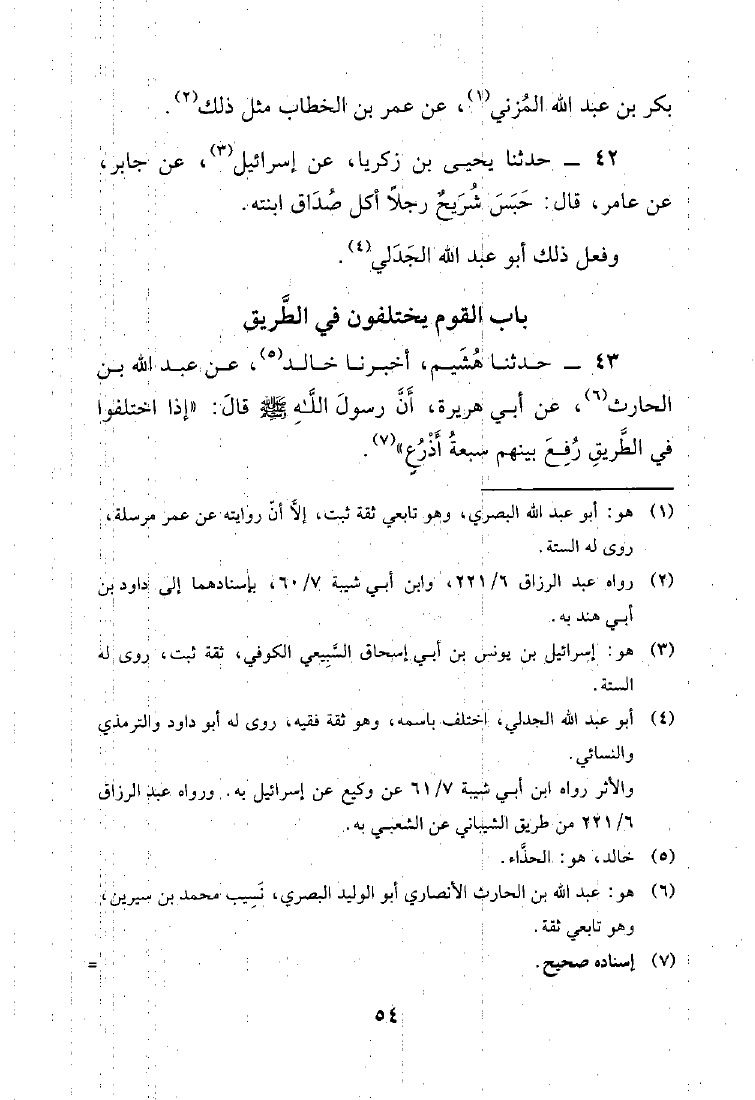 بكر بن عبد الله المُزني(١)، عن عمر بن الخطاب مثل ذلك(٢).
٤٢ ــ حدثنا يحيى بن زكريا، عن إسرائيل(٣)، عن جابر،
عن عامر، قال: حَبَسَ شُرَيحٌ رجلاً أكل صُدَاق ابنته.
وفعل ذلك أبو عبد الله الجَدَلي(٤).
باب القوم يختلفون في الطَّريق
٤٣ ــ حدثنا هُشَيم، أخبرنا خالد(٥)، عن عبد الله بن
الحارث(٦)، عن أبي هريرة، أَنَّ رسولَ اللَّـٰهِ ﷺ قالَ: «إذا اختلفوا
في الطَّريقِ رُفِعَ بينهم سبعةُ أَذْرُعٍ»(٧).
(١) هو: أبو عبد الله البصري، وهو تابعي ثقة ثبت، إلاَّ أنّ روايته عن عمر مرسلة،
روى له الستة.
(٢) رواه عبد الرزاق ٢٢١/٦، وابن أبي شيبة ٦٠/٧، بإسنادهما إلى داود بن
أبي هند به.
(٣) هو: إسرائيل بن يونس بن أبي إسحاق السَّبيعي الكوفي، ثقة ثبت، روى له
الستة.
(٤) أبو عبد الله الجدلي، اختلف باسمه، وهو ثقة فقيه، روى له أبو داود والترمذي
والنسائي.
والأثر رواه ابن أبي شيبة ٦١/٧ عن وكيع عن إسرائيل به. ورواه عبد الرزاق
٢٢١/٦ من طريق الشيباني عن الشعبي به.
(٥) خالد، هو: الحذَّاء.
(٦) هو: عبد الله بن الحارث الأنصاري أبو الوليد البصري، نَسِيب محمد بن سيرين،
وهو تابعي ثقة.
(٧) إسناده صحيح. =
٥٤